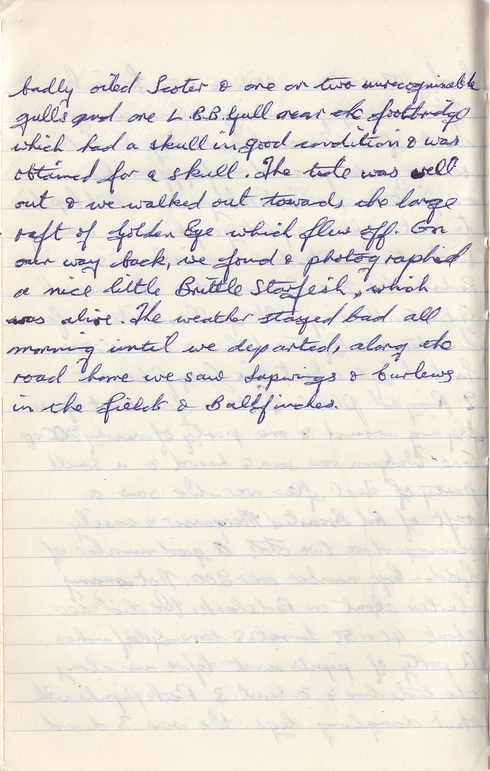 badly oiled Scoter & one or two unrecognisable
gulls and one L.B.B. Gull near the footbridge
which had a skull in good condition & was
obtained for a skull. The tide was well
out & we walked out towards the large
raft of Golden Eye which flew off. On
our way back, we found & photographed
a nice little Brittle Starfish, which
was alive. The weather stayed bad all
morning until we departed, along the
road home we saw Lapwings & Curlews
in the fields & Bullfinches.